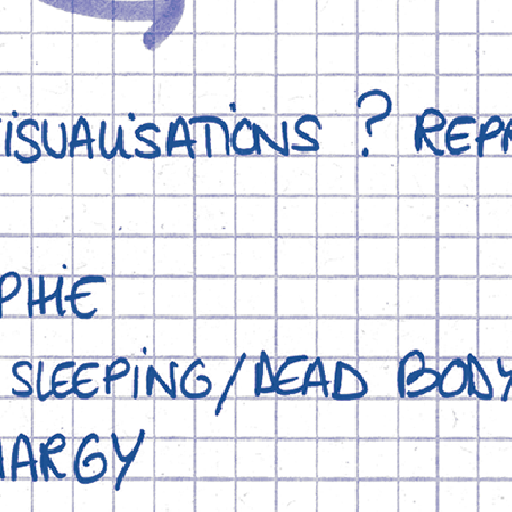 ViSUALiSATiONS ? REPR
PHiE
SLEEPiNG/DEAD BODY
HARGY